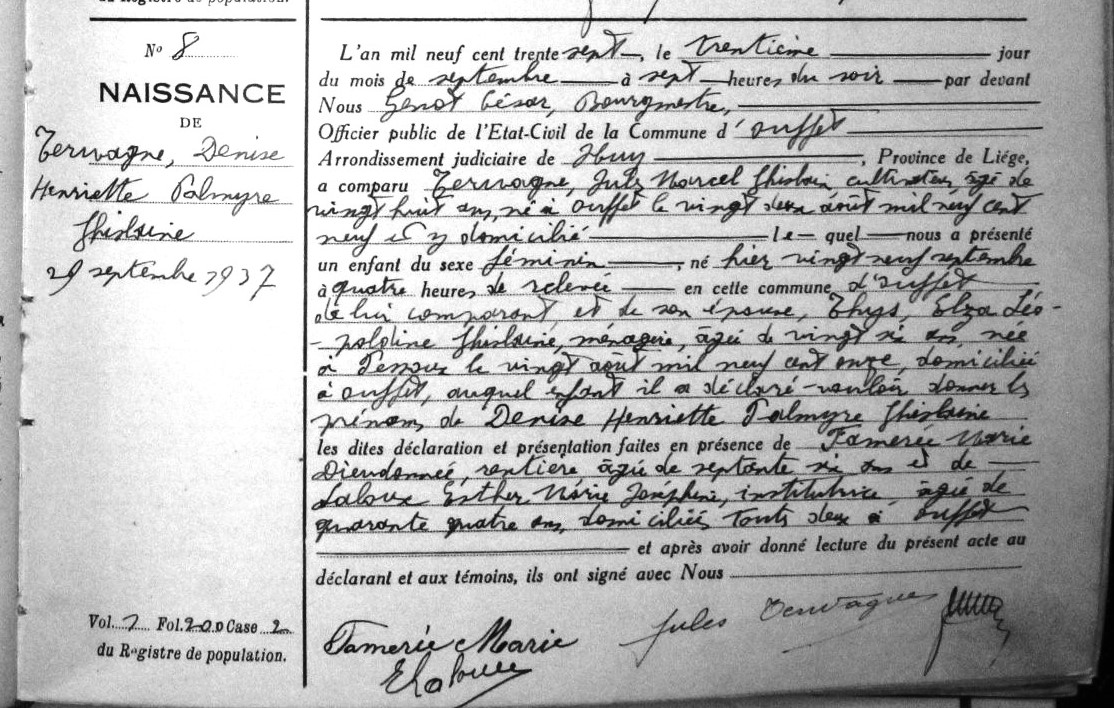 du Registre de population.
N° 8
NAISSANCE
DE
Tervagne, Denise
Henriette Palmyre
Ghislaine
29 septembre 1937
L'an mil neuf cent trente sept, le trentième jour
du mois de septembre à sept heures du soir par devant
Nous Genot César, Bourgmestre,
Officier public de l'Etat-Civil de la Commune d'Ouffet
Arrondissement judiciaire de Huy, Province de Liége,
a comparu Tervagne, Jules Marcel Ghislain, cultivateur, âgé de
vingt huit ans, né à Ouffet le vingt deux août mil neuf cent
neuf et y domicilié lequel nous a présenté
un enfant du sexe féminin, né hier vingt neuf septembre
à quatre heures de relevée en cette commune d'Ouffet
de lui comparant et de son épouse, Thys, Elza Léo-
-poldine Ghislaine, ménagère, âgée de vingt six ans, née
à Pessoux le vingt août mil neuf cent onze, domiciliée
à Ouffet, auquel enfant il a déclaré vouloir donner les
prénoms de Denise Henriette Palmyre Ghislaine
les dites déclaration et présentation faites en présence de Famerée Marie
Dieudonnée, rentière âgée de septante six ans et de
Laloux Esther Marie Joséphine, institutrice, âgée de
quarante quatre ans, domiciliés touts deux à Ouffet
et après avoir donné lecture du présent acte au
déclarant et aux témoins, ils ont signé avec Nous
Famerée Marie
Jules Tervagne
E Laloux
Vol. 7 Fol. 200 Case 2
du Registre de population.